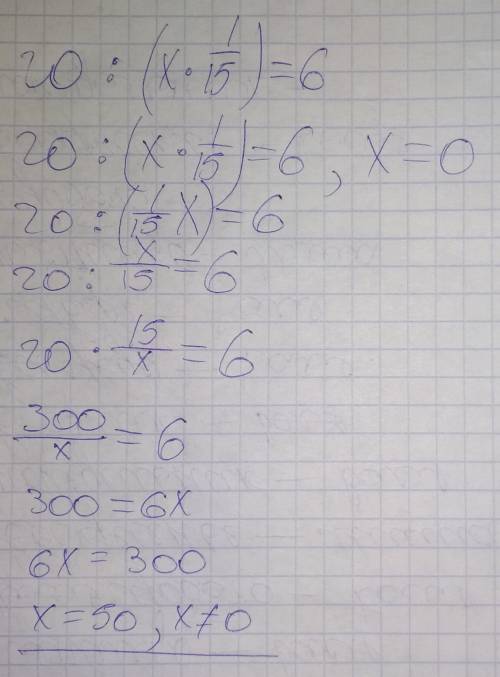 20 : (x · 1/15) = 6
20 : (x · 1/15) = 6, x = 0
20 : (1/15 x) = 6
20 : x/15 = 6
20 · 15/x = 6
300/x = 6
300 = 6x
6x = 300
x = 50, x ≠ 0